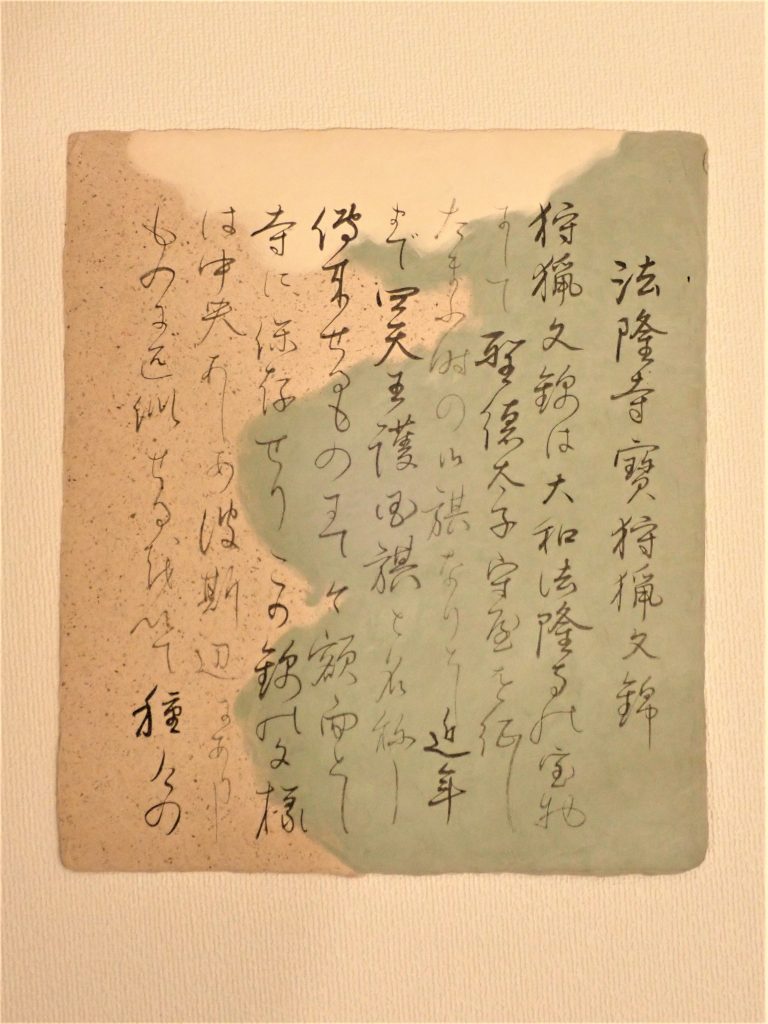 法隆寺寶狩猟文錦
狩猟文錦は大和法隆寺の宝物
にして聖徳太子守屋を征し
たまふ時の御旗なりとし近年
まで四天王護国旗と名称し
傳来せるものにて今額面とし
寺に保存せりこの錦の文様
は中央あじあ波斯辺にありし
ものに近似せるを以て種々の